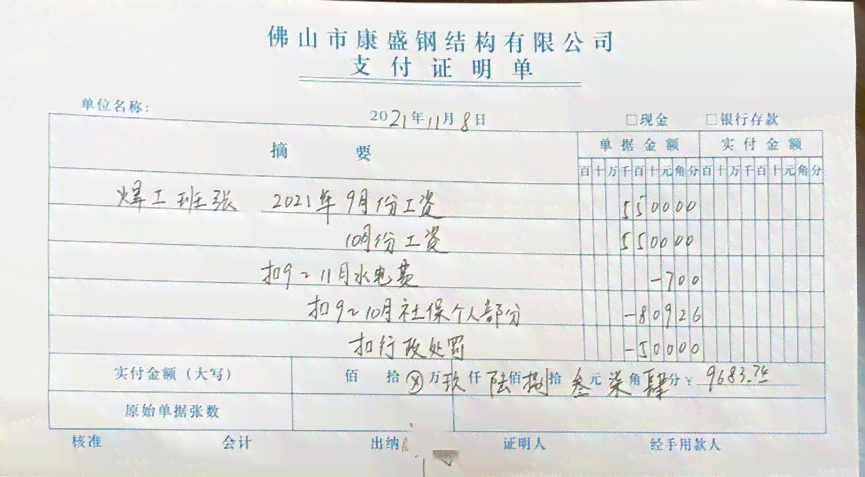 佛山市康盛钢结构有限公司
支付证明单
单位名称: 2021年11月8日 □现金 □银行存款
摘要 单据金额 实付金额
百十万千百十元角分 百十万千百十元角分
焊工班张 2021年9月份工资 550000
10月份工资 550000
扣9~11月水电费 -700
扣9~10月社保个人部分 -80926
扣行政处罚 -50000
实付金额(大写) 佰 拾 ⊗万玖仟陆佰捌拾叁元柒角肆分 ¥ 9683.74
原始单据张数
核准 会计 出纳 证明人 经手用款人